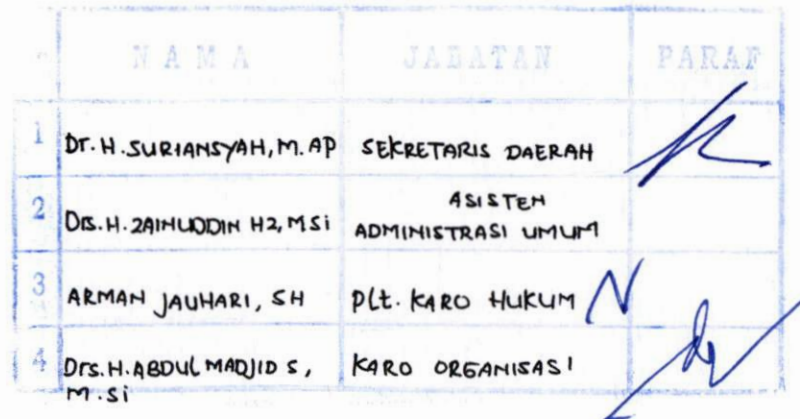 NAMA JABATAN PARAF
1 Dr. H. SURIANSYAH, M. AP SEKRETARIS DAERAH
2 Drs. H. ZAINUDDIN HZ, MSi ASISTEN
ADMINISTRASI UMUM
3 ARMAN JAUHARI, SH Plt. KARO HUKUM
4 Drs. H. ABDUL MADJID S, KARO ORGANISASI
M. Si